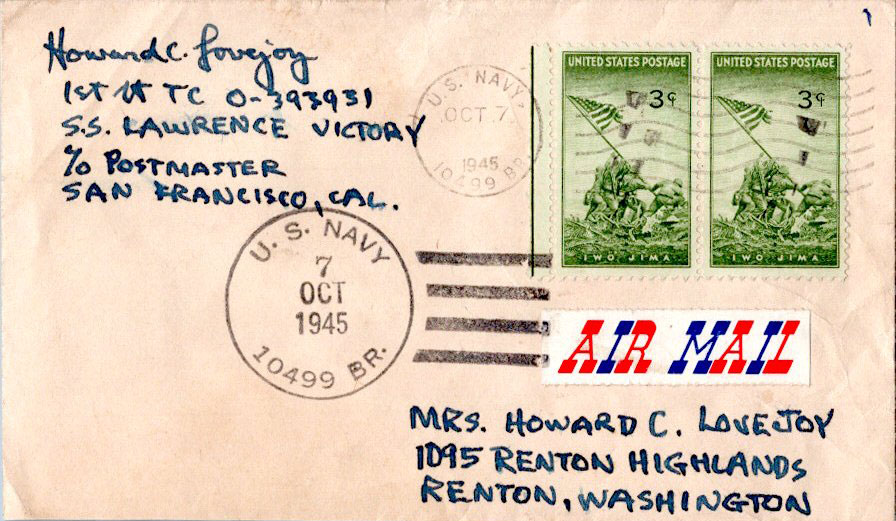 Howard C. Lovejoy
1st Lt TC O-393931
S.S. LAWRENCE VICTORY
c/o POSTMASTER
SAN FRANCISCO, CAL.
U.S. NAVY
OCT. 7
1945
10499 BR.
UNITED STATES POSTAGE
3¢
IWO JIMA
UNITED STATES POSTAGE
3¢
IWO JIMA
U. S. NAVY
7
OCT
1945
10499 BR.
AIR MAIL
MRS. HOWARD C. LOVEJOY
1095 RENTON HIGHLANDS
RENTON, WASHINGTON